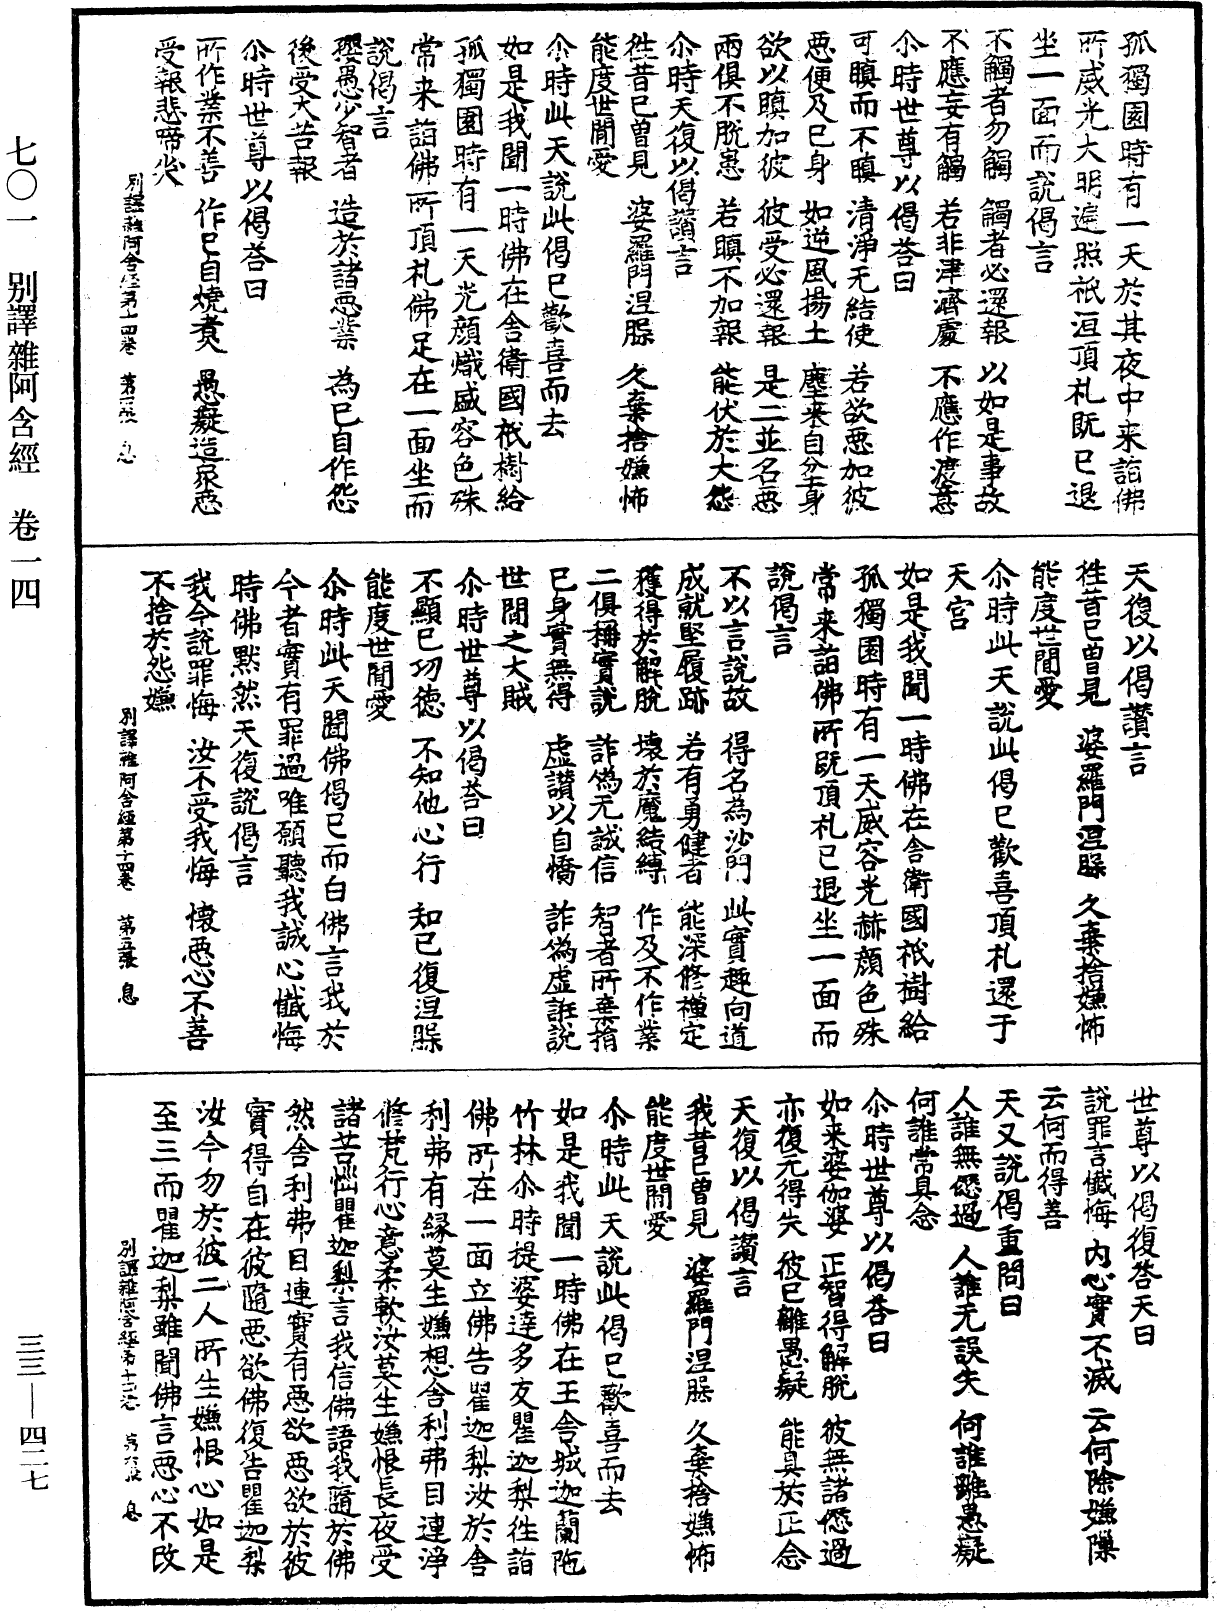 孤獨園時有一天於其夜中来詣佛
所威光大明遍照祇洹頂礼既已退
坐一面而説偈言
不觸者勿觸　觸者必還報　以如是事故
不應妄有觸　若非津濟處　不應作渡意
尒時世尊以偈荅曰
可瞋而不瞋　清淨无結使　若欲惡加彼
惡便及已身　如逆風揚土　塵来自坌身
欲以瞋加彼　彼受必還報　是二並名惡
兩俱不脱患　若瞋不加報　能伏於大怨
尒時天復以偈讃言
徃昔已曽見　婆羅門涅槃　久棄捨嫌怖
能度世間愛
尒時此天説此偈已歡喜而去
如是我聞一時佛在舎衛國祇樹給
孤獨園時有一天光顔熾盛容色殊
常来詣佛所頂礼佛足在一面坐而
説偈言
嬰愚少智者　造於諸惡業　為已自作怨
後受大苦報
尒時世尊以偈荅曰
所作業不善　作已自燒煑　愚癡造衆惡
受報悲啼哭
別譯雜阿含經第十四卷　第四張　息
天復以偈讃言
徃昔已曽見　婆羅門涅槃　久棄捨嫌怖
能度世間愛
尒時此天説此偈已歡喜頂礼還于
天宫
如是我聞一時佛在舎衛國祇樹給
孤獨園時有一天威容光赫顔色殊
常来詣佛所既頂礼已退坐一面而
説偈言
不以言説故　得名為沙門　此實趣向道
成就堅履跡　若有勇健者　能深修禪定
獲得於解脱　壊於魔結縛　作及不作業
二俱稱實説　詐偽无誠信　智者所棄捐
已身實無得　虚讃以自憍　詐偽虚誑説
世間之大賊
尒時世尊以偈荅曰
不顯已功徳　不知他心行　知已復涅槃
能度世間愛
尒時此天聞佛偈已而白佛言我於
今者實有罪過唯願聽我誠心懺悔
時佛默然天復説偈言
我今説罪悔　汝不受我悔　懷惡心不善
不捨於怨嫌
別譯雜阿含經第十四卷　第五張　息
世尊以偈復荅天曰
説罪言懺悔　内心實不滅　云何除嫌隟
云何而得善
天又説偈重問曰
人誰無愆過　人誰无誤失　何誰離愚癡
何誰常具念
尒時世尊以偈荅曰
如来婆伽婆　正智得解脱　彼無諸愆過
亦復无得失　彼已離愚癡　能具於正念
天復以偈讃言
我昔已曽見　婆羅門涅槃　久棄捨嫌怖
能度世間愛
尒時此天説此偈已歡喜而去
如是我聞一時佛在王舎城迦蘭陁
竹林尒時提婆達多友瞿迦梨徃詣
佛所在一面立佛告瞿迦梨汝於舎
利弗有縁莫生嫌想舎利弗目連淨
修梵行心意柔軟汝莫生嫌恨長夜受
諸苦惱瞿迦梨言我信佛語我隨於佛
然舎利弗目連實有惡欲惡欲於彼
實得自在彼隨惡欲佛復告瞿迦梨
汝今勿於彼二人所生嫌恨心如是
至三而瞿迦梨雖聞佛言惡心不改
別譯雜阿含經第十四卷　第六張　息
七〇一　別譯雜阿含經　卷一四
三三—四二七